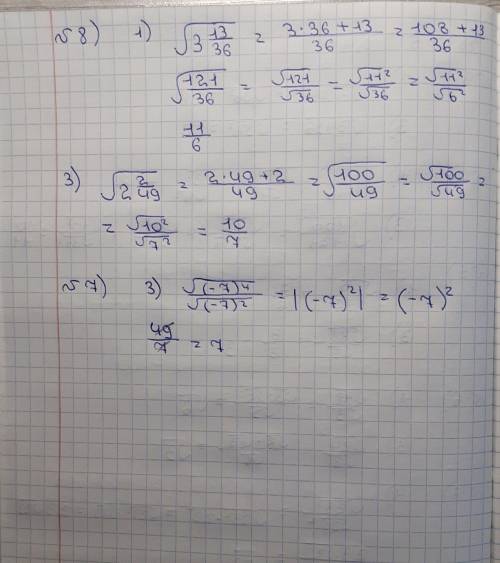 №8) 1) √(3 13/36) = (3·36+13)/36 = (108+13)/36
√(121/36) = √121/√36 = √11²/√36 = √11²/√6²
11/6
3) √(2 2/49) = (2·49+2)/49 = √(100/49) = √100/√49 =
= √10²/√7² = 10/7
№7) 3) √(-7)4/√(-7)2 = |(-7)²| = (-7)²
49/7 = 7